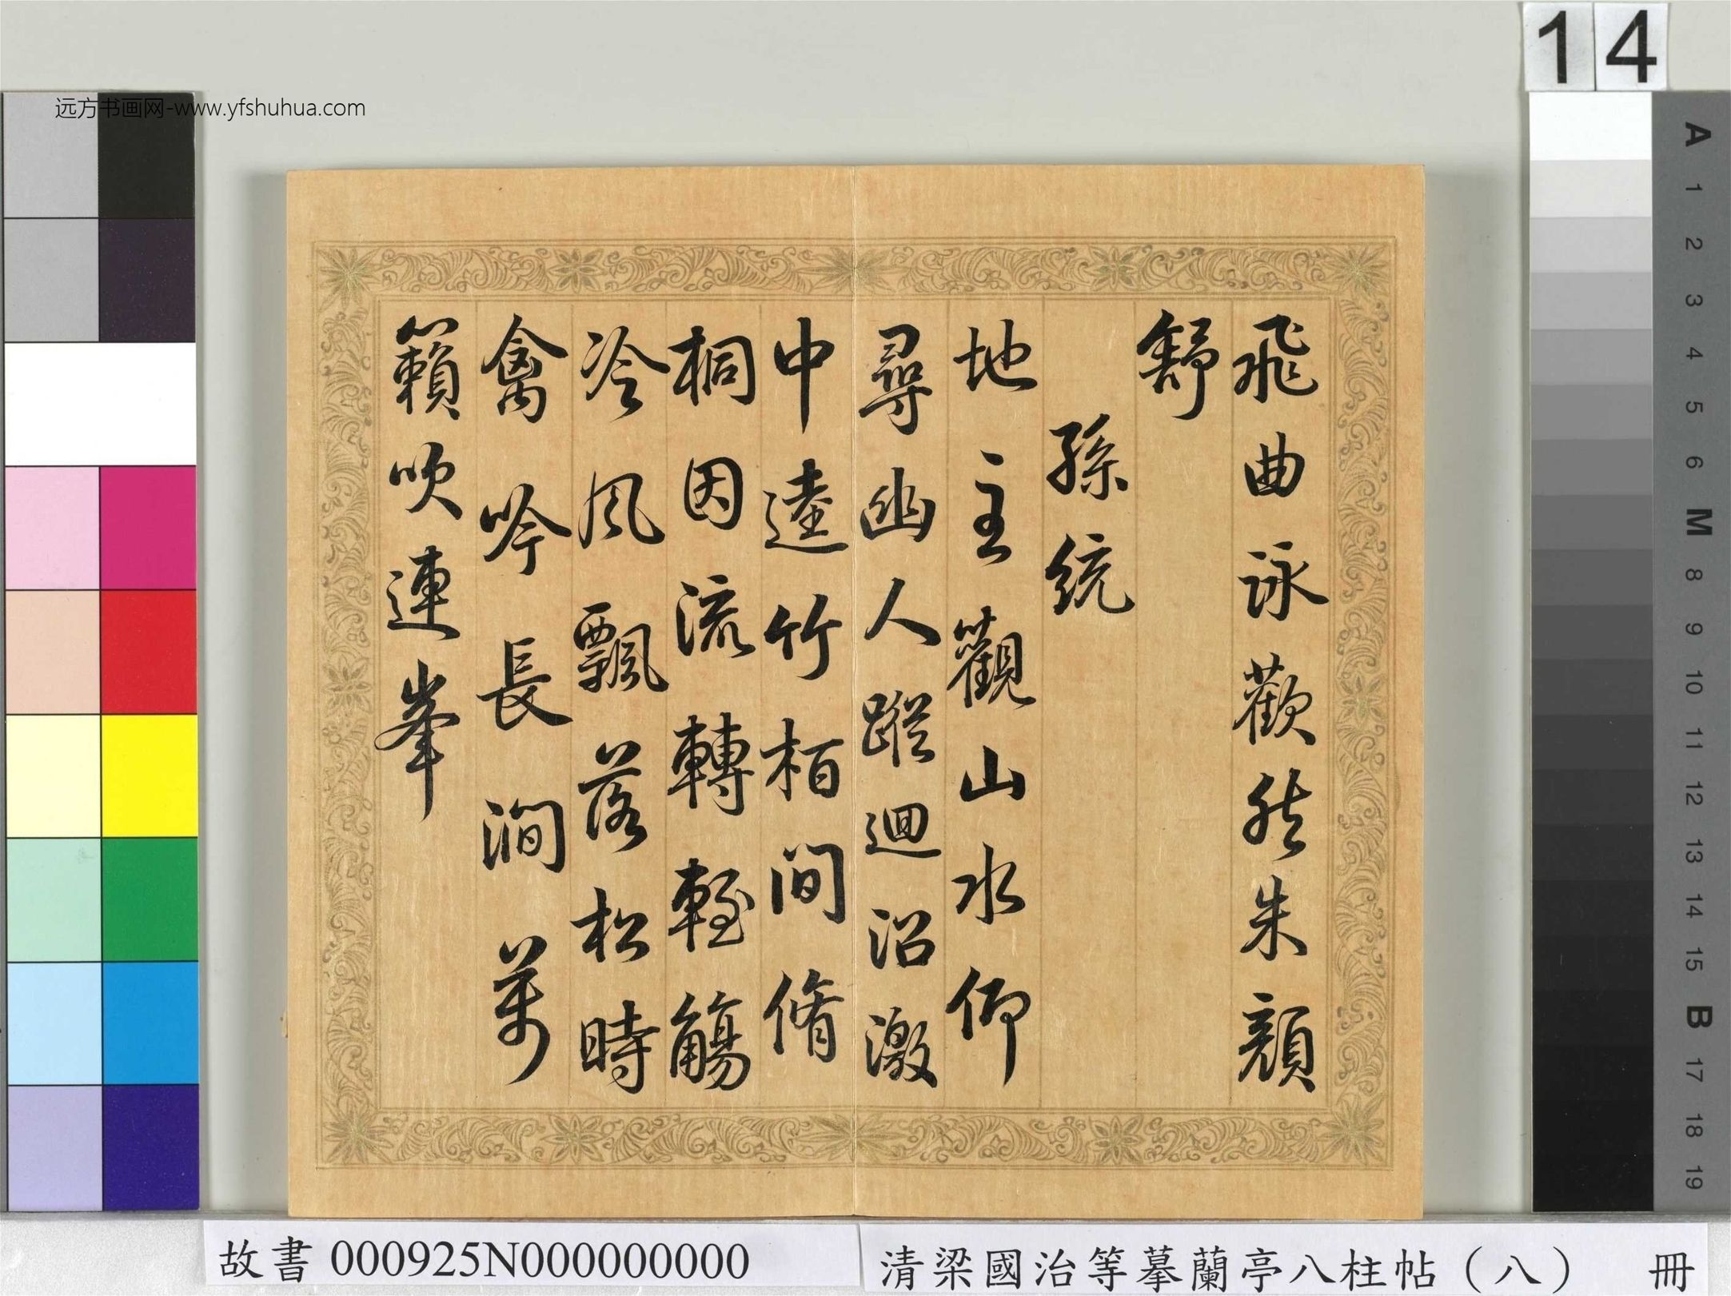 远方书画网-www.yfshuhua.com
14
飛曲詠歡然朱顏
舒
孫統
地主觀山水仰
尋幽人蹤迴沼激
中逵竹栢間脩
桐因流轉輕觴
冷風飄落松時
禽吟長澗萬
籟吹連峯
A
1
2
3
4
5
6
M
8
9
10
11
12
13
14
15
B
17
18
19
故書 000925N000000000
清梁國治等摹蘭亭八柱帖（八） 冊